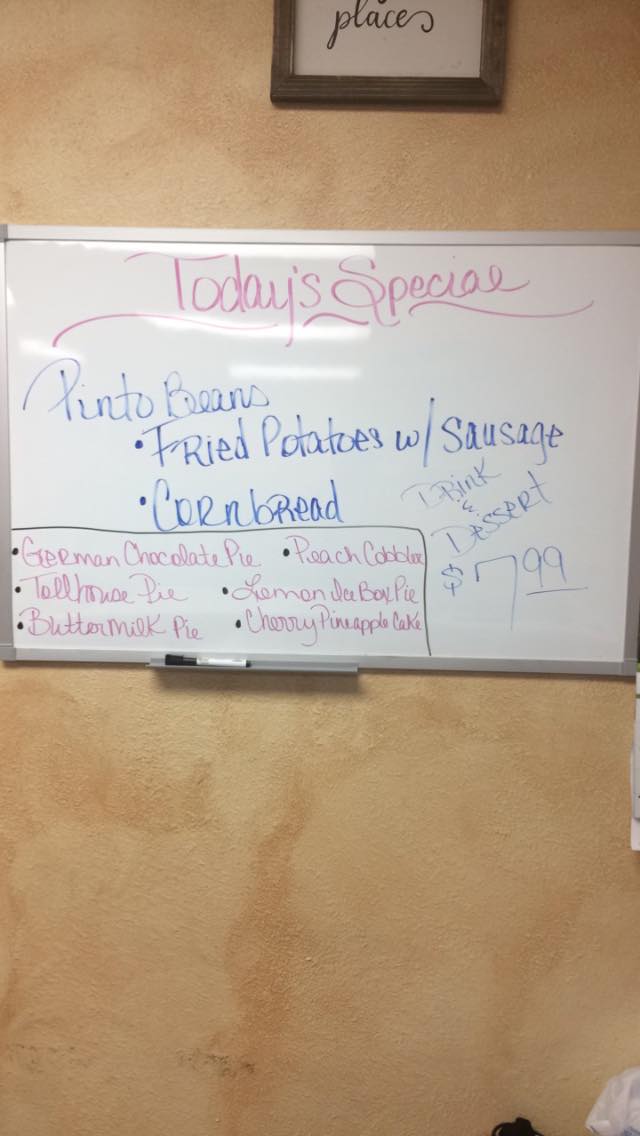 place
Today's Special
Pinto Beans
• Fried Potatoes w/ Sausage
• Cornbread
Drink
&
Dessert
$7.99
• German Chocolate Pie
• Peach Cobbler
• Tollhouse Pie
• Lemon Ice Box Pie
• Buttermilk Pie
• Cherry Pineapple Cake